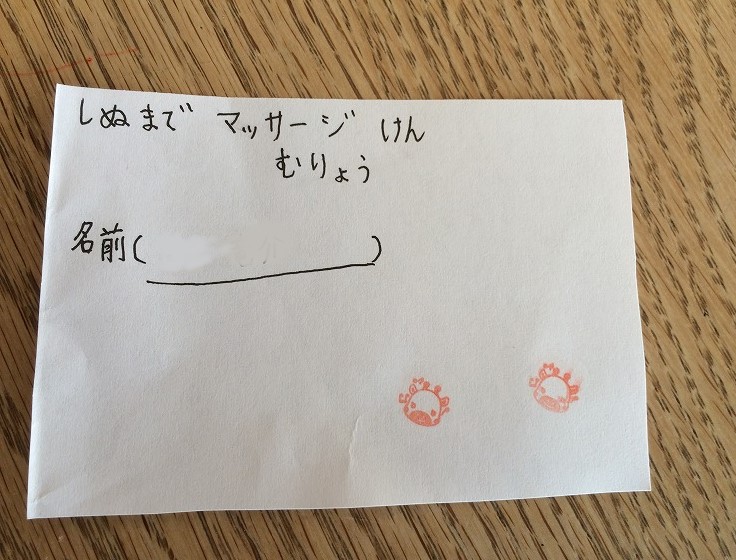 しぬまで マッサージ けん
むりょう
名前( )